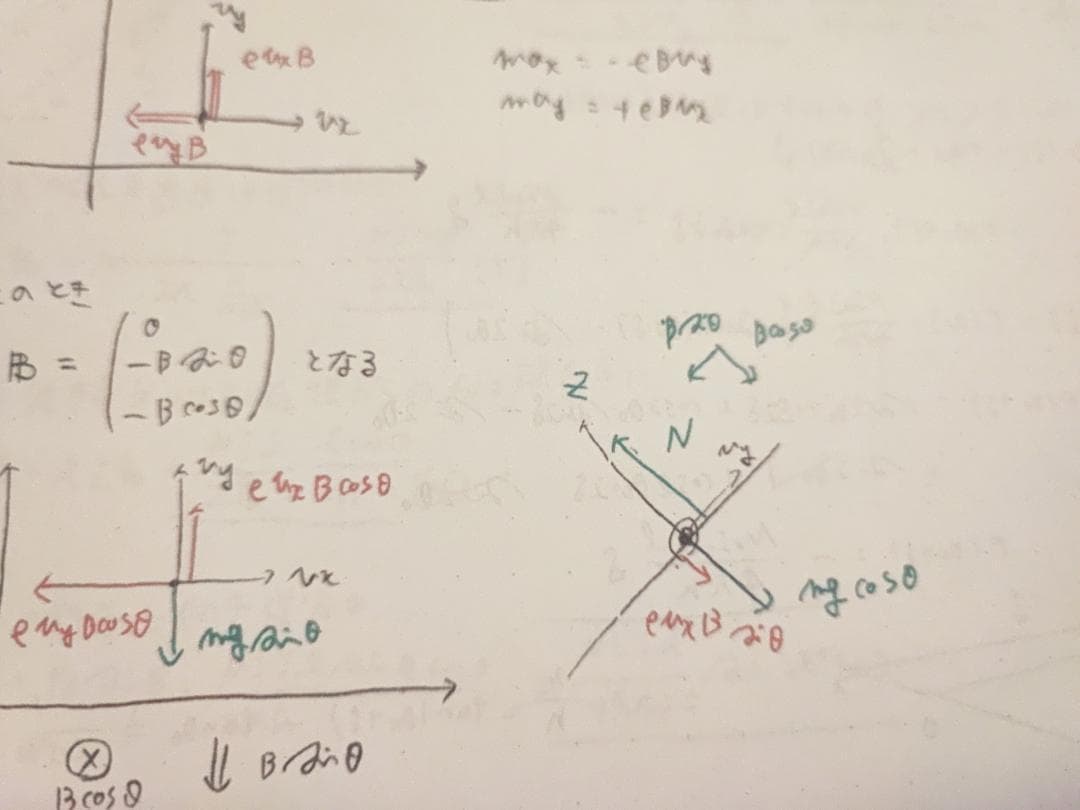 vy
evxB
vx
evyB
max = -eBvy
may = +eBvx
のとき
B = ( 0
-B sinθ
-B cosθ ) となる
vy
evxBcosθ
vx
evyBcosθ
mg sinθ
⊗
Bcosθ
B sinθ
Bsinθ Bcosθ
Z
N
vy
mg cosθ
evxB sinθ